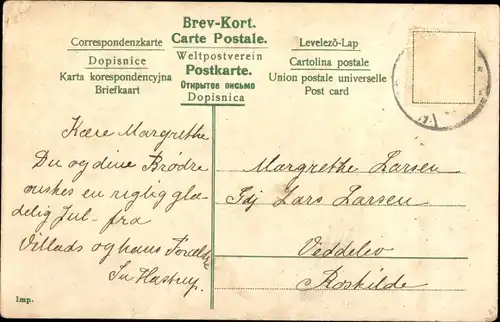 Brev-Kort.
Carte Postale.
Correspondenzkarte
Dopisnice
Karta korespondencyjna
Briefkaart
Weltpostverein
Postkarte.
Открытое письмо
Dopisnica
Levelező-Lap
Cartolina postale
Union postale universelle
Post card
Kære Margrethe
Du og dine Brødre
ønskes en rigtig glæ-
delig Jul - fra
Villads og hans Foræld
Hastrup.
Margrethe Larsen
Lars Larsen
Veddelev
Roskilde
Imp.